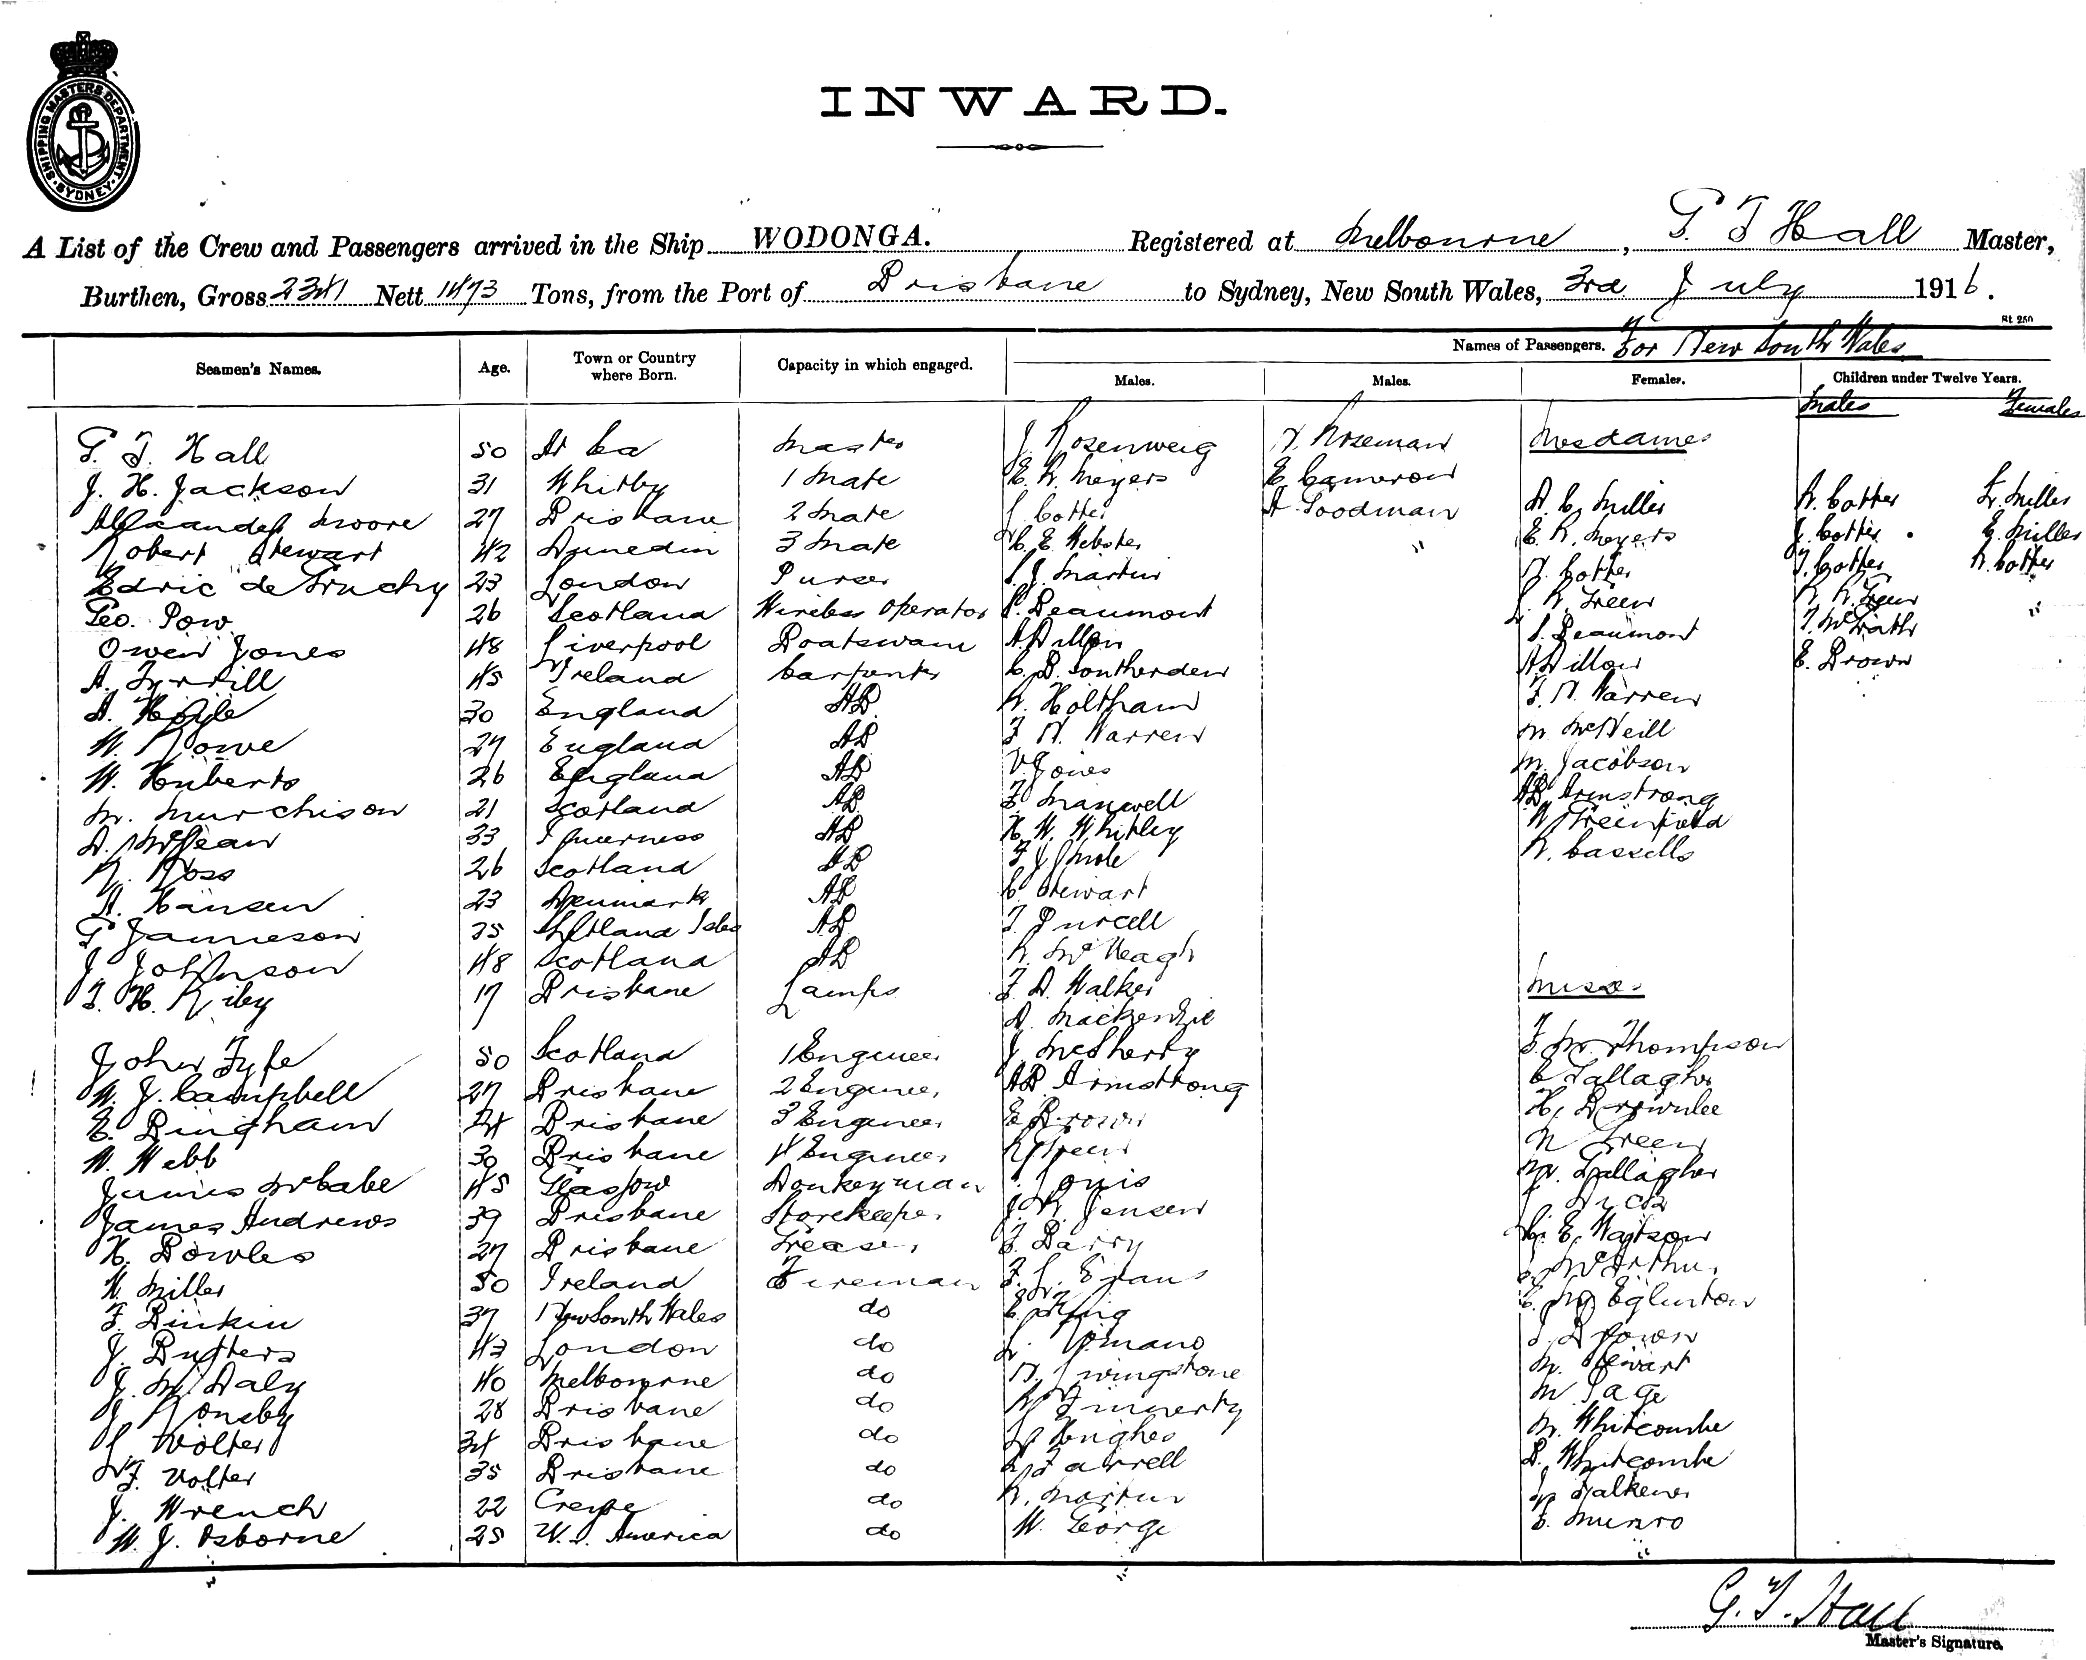 SHIPPING MASTERS DEPARTMENT SYDNEY
INWARD.
A List of the Crew and Passengers arrived in the Ship WODONGA. Registered at Melbourne, G. T Hall Master,
Burthen, Gross 2341 Nett 1473 Tons, from the Port of Brisbane to Sydney, New South Wales, 3rd July 1916.
St 250
Seamen's Names. Age. Town or Country where Born. Capacity in which engaged. Names of Passengers. For New South Wales
Males. Males. Females. Children under Twelve Years.
Males Females
G. T. Hall 50 At Sea Master J. Rosenweig N. Noseman Mesdames
J. H. Jackson 31 Whitby 1 Mate E. R. Meyers E. Cameron A. C. Miller R. Cotter L. Miller
Alexander Moore 27 Brisbane 2 Mate J. Cotter A. Goodman E. R. Meyers J. Cotter E. Miller
Robert Stewart 42 Dunedin 3 Mate C. E. Webster N. Cotter T. Cotter R. Cotter
Edric de Gruchy 23 London Purser S. J. Martin L. R. Green R. R. Green
Geo. Pow 26 Scotland Wireless Operator S. Beaumont S. Beaumont T. McGrath
Owen Jones 48 Liverpool Boatswain A Dillon A Dillon E. Brown
A. Tyrrill 45 Ireland Carpenter C. B. Southerden F. N. Warren
A. 30 England AB R. Holtham M. McNeill
W. Rowe 27 England AB F. N. Warren M. Jacobson
W. Huberts 26 England AB V Jones AB Armstrong
M. Murchison 21 Scotland AB F. Maxwell N Greenfield
D. McLean 33 Inverness AB H. W. Whitley R. Cassells
R. Ross 26 Scotland AB F J Mole
A. Hansen 23 Denmark AB C Stewart
G Jamieson 35 Shetland Isles AB T. Purcell
J Johnson 48 Scotland AB R. McVeagh
T. H. Riby 17 Brisbane Lamps F. A. Walker Misses
D. Mackenzie
John Fyfe 50 Scotland 1 Engineer J. McSherry F. M. Thompson
W. J. Campbell 27 Brisbane 2 Engineer AB Armstrong C Gallagher
E. Bingham 24 Brisbane 3 Engineer E Brown H. Brownlee
W. Webb 30 Brisbane 4 Engineer R Green N Green
James McCabe 45 Glasgow Donkeyman Louis M. Gallagher
James Andrews 39 Brisbane Storekeeper J. R. Jensen
H. Bowles 27 Brisbane Greaser F. Barry E. Watson
H. Miller 50 Ireland Fireman F. L. Evans McArthur
F. Binkin 37 New South Wales do E King C. M Eglinton
J. Butters 43 London do L. Romano J. Brown
J. M. Daly 40 Melbourne do N. Livingstone M. Stewart
J Ronsby 28 Brisbane do Finnerty M Page
L Volter 34 Brisbane do Hughes M. Whitcombe
F. Volter 35 Brisbane do Farrell B. Whitcombe
J. Wrench 22 Crewe do R. Martin Falkener
W. J. Osborne 25 U. S. America do W. George E. Munro
G. T. Hall
Master's Signature.